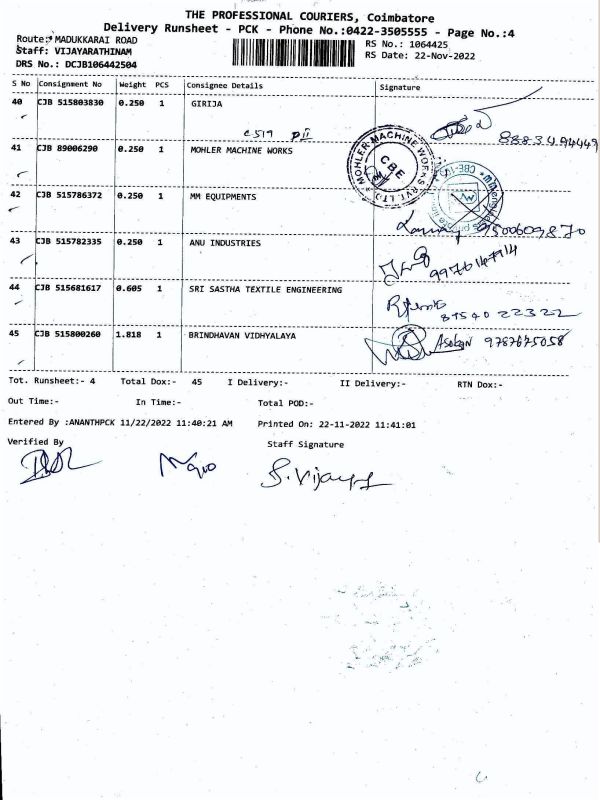 THE PROFESSIONAL COURIERS, Coimbatore
Delivery Runsheet - PCK - Phone No.:0422-3505555 - Page No.:4
Route: MADUKKARAI ROAD
Staff: VIJAYARATHINAM
DRS No.: DCJB106442504
RS No.: 1064425
RS Date: 22-Nov-2022
S No Consignment No Weight PCS Consignee Details Signature
40 CJB 515803830 0.250 1 GIRIJA
41 CJB 89006290 0.250 1 MOHLER MACHINE WORKS
MOHLER MACHINE WORKS PVT. LTD
CBE
42 CJB 515786372 0.250 1 MM EQUIPMENTS
9500609870
43 CJB 515782335 0.250 1 ANU INDUSTRIES
44 CJB 515681617 0.605 1 SRI SASTHA TEXTILE ENGINEERING
89540 22322
45 CJB 515800260 1.818 1 BRINDHAVAN VIDHYALAYA
Asokan 9787675058
Tot. Runsheet:- 4 Total Dox:- 45 I Delivery:- II Delivery:- RTN Dox:-
Out Time:- In Time:- Total POD:-
Entered By :ANANTHPCK 11/22/2022 11:40:21 AM Printed On: 22-11-2022 11:41:01
Verified By Staff Signature